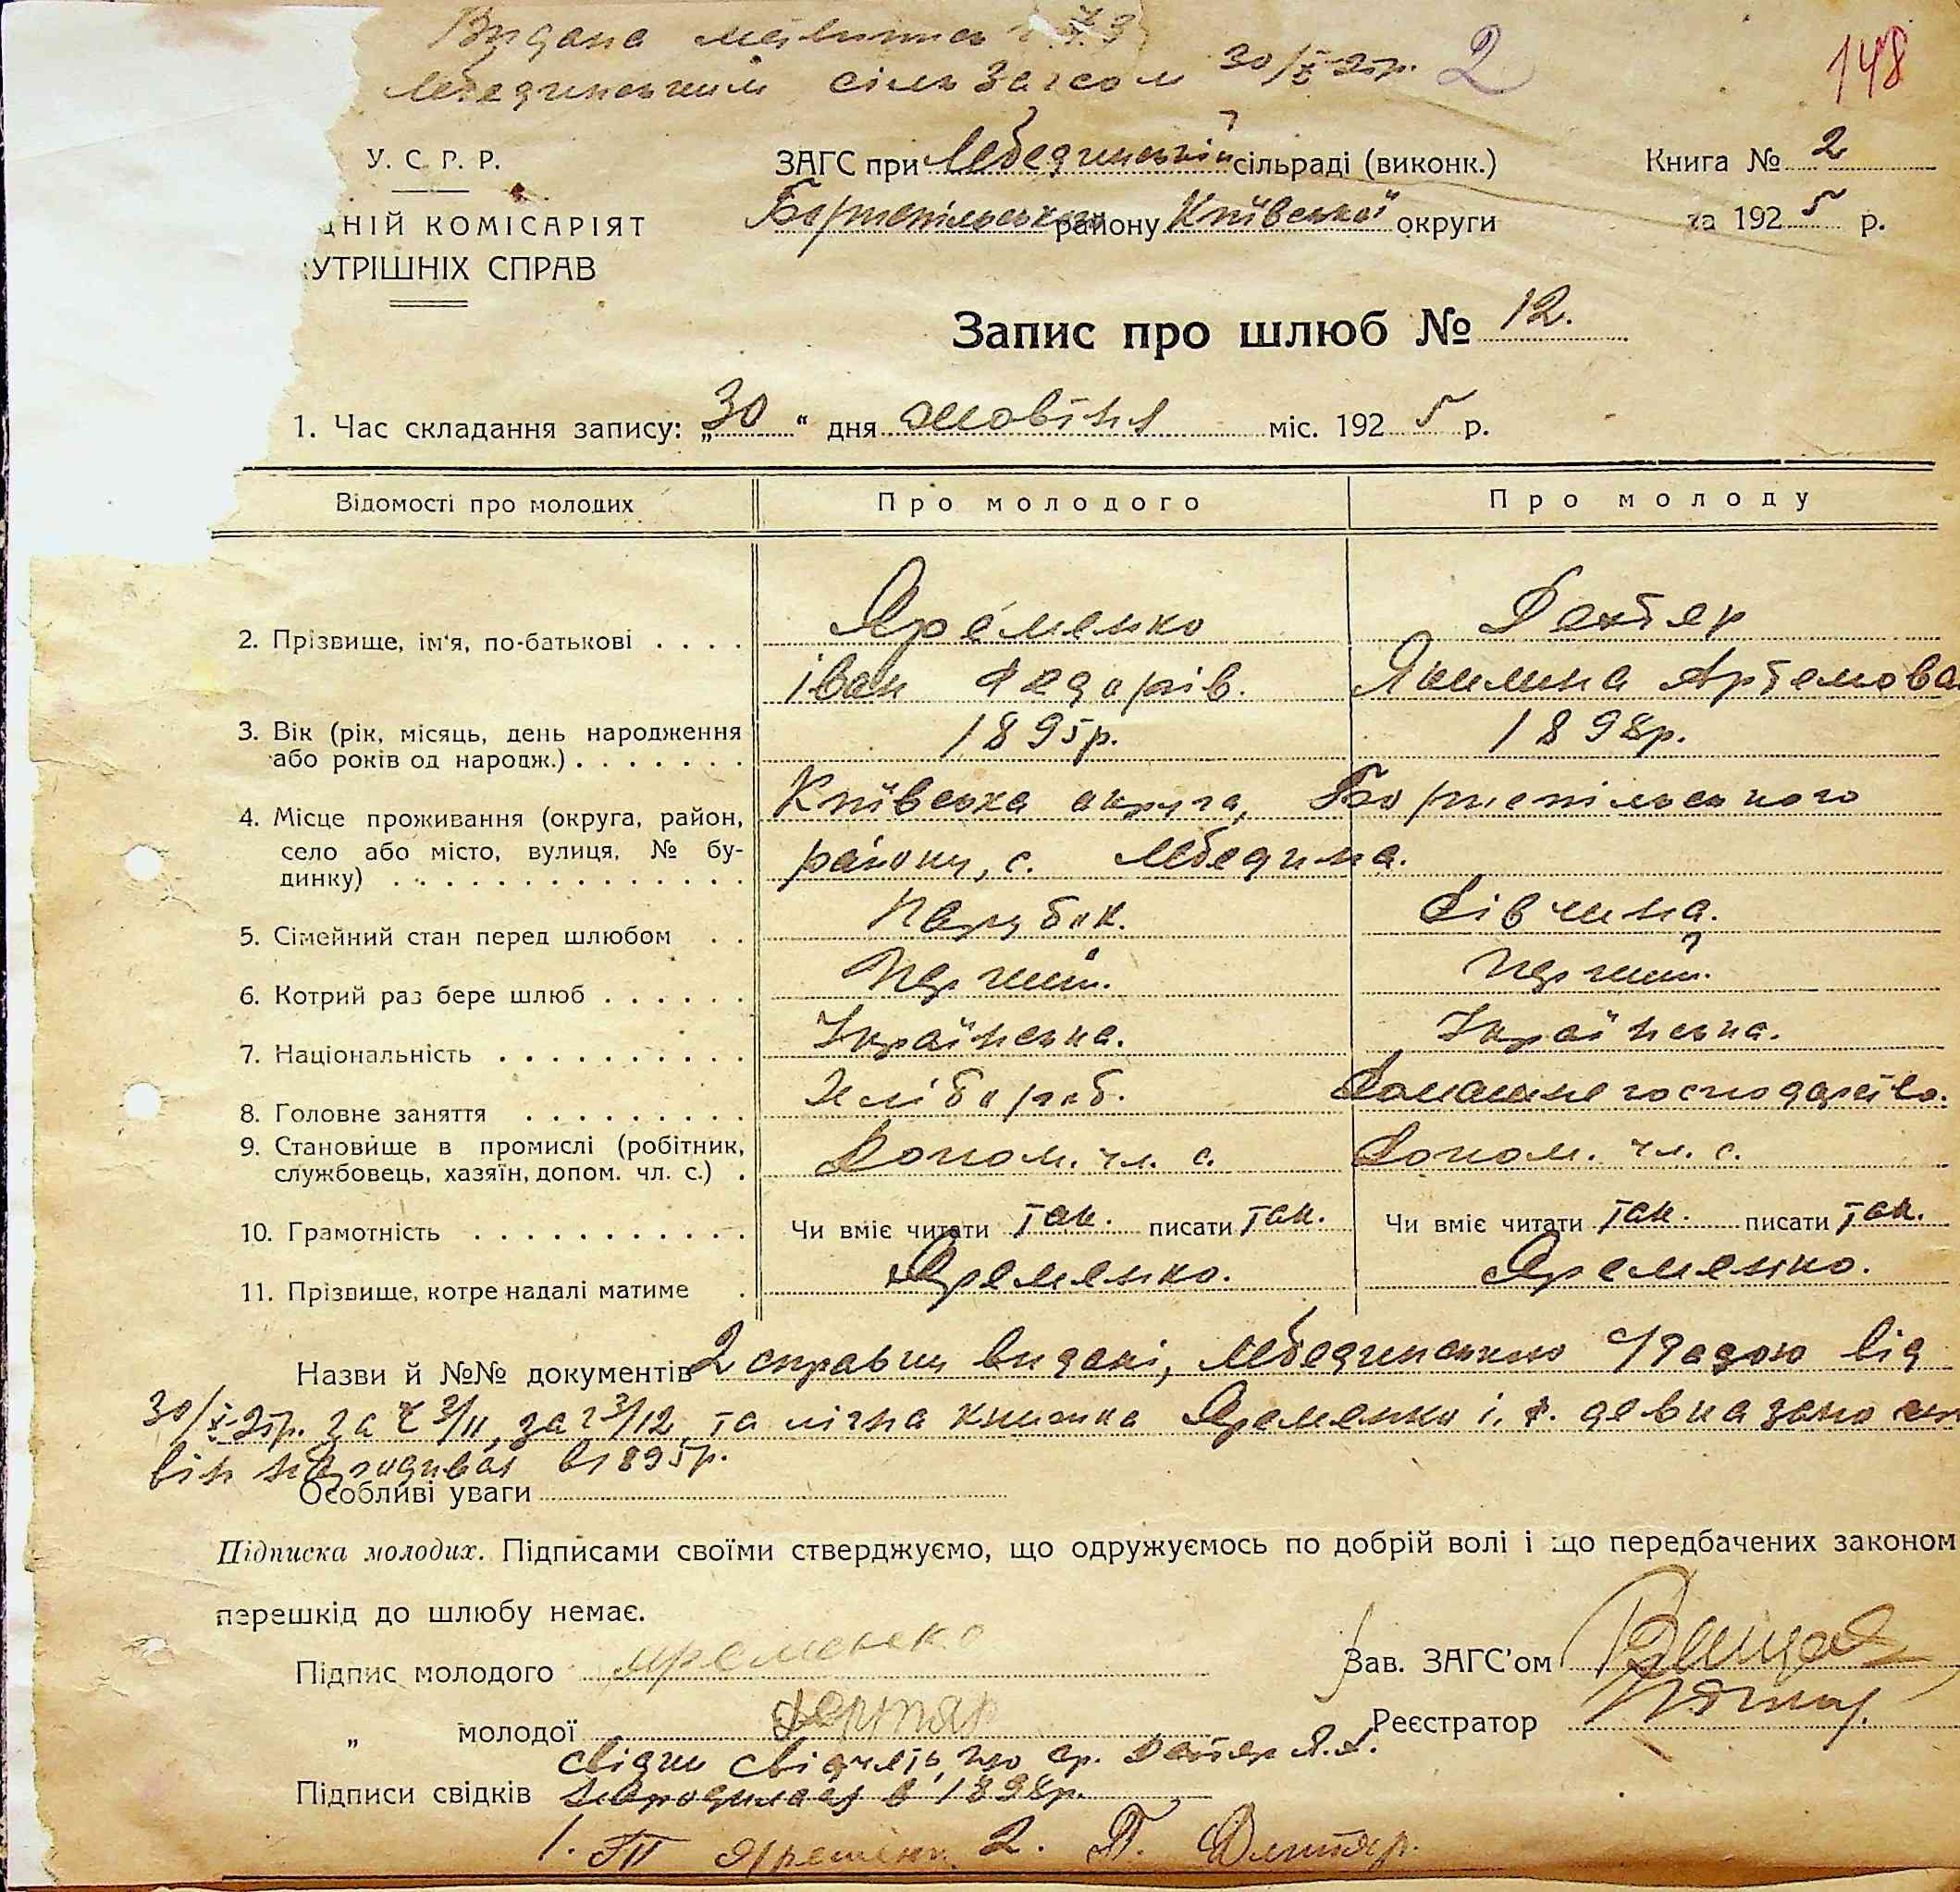 Видана
Лебединським сільЗагсом 30/X-25р. 2
148
У. С. Р. Р.
ДНІЙ КОМІСАРІЯТ
УТРІШНІХ СПРАВ
ЗАГС при Лебединській сільраді (виконк.)
Бориспільського району Київської округи
Книга № 2
за 1925 р.
Запис про шлюб № 12.
1. Час складання запису: „30“ дня жовтня міс. 1925 р.
Відомості про молодих Про молодого Про молоду
2. Прізвище, ім'я, по-батькові . . . . Яременко
Іван Федорів. Якилина Артемова
3. Вік (рік, місяць, день народження або років од народж.) . . . . . . . 1895р. 1898р.
4. Місце проживання (округа, район, Київська округа, Бориспільського
село або місто, вулиця, № бу-динку) . . . . . . . . . . . . . . району, с. Лебедина.
5. Сімейний стан перед шлюбом . . Парубок. Дівчина.
6. Котрий раз бере шлюб . . . . . . Перший. Перший.
7. Національність . . . . . . . . . . Українська. Українська.
8. Головне заняття . . . . . . . . . Хлібороб. Домашнє господарство.
9. Становище в промислі (робітник, службовець, хазяїн, допом. чл. с.) . Допом. чл. с. Допом. чл. с.
10. Грамотність . . . . . . . . . . . Чи вміє читати так. писати так. Чи вміє читати так. писати так.
11. Прізвище, котре надалі матиме . Яременко. Яременко.
Назви й №№ документів 2 справки видані, Лебединською с/Радою від
30/X-25р. за № 3/11, за № 3/12, та лічна книжка Яременко І. Ф. де вказано що
він народивсь в 1895р.
Особливі уваги
Підписка молодих. Підписами своїми стверджуємо, що одружуємось по добрій волі і що передбачених законом
перешкід до шлюбу немає.
Підпис молодого яременко
Зав. ЗАГС'ом
„ молодої
Реєстратор
свідки свідчать, що гр.
Підписи свідків народилась в 1898р.
1. П Яременко 2. П.